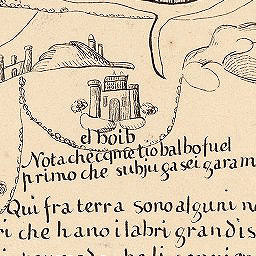 elhoib
Nota che cornelio balbo fu el
primo che subjuga sei garam
Qui fra terra sono alguni n
ri che hano i labri grandis